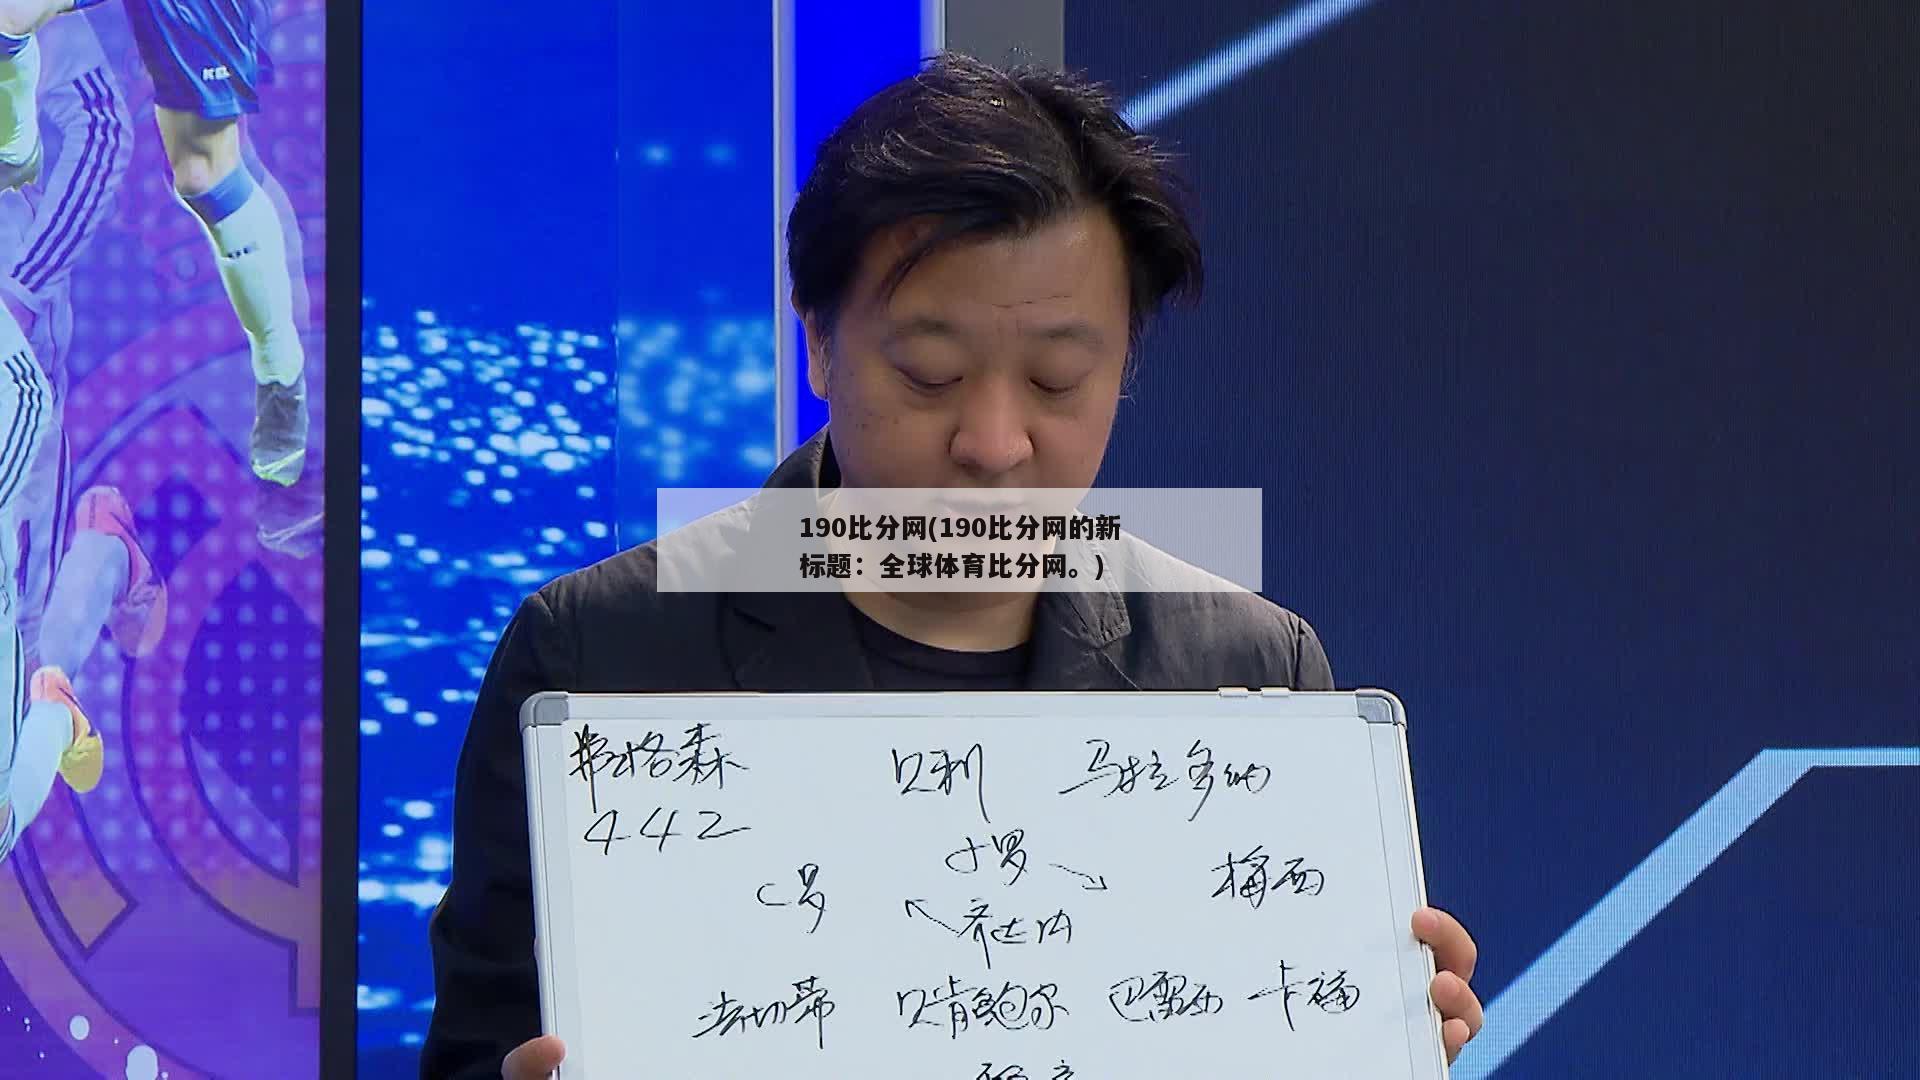 190比分网(190比分网的新
标题：全球体育比分网。)
弗格森 贝利 马拉多纳
442
C罗 小罗 梅西
齐达内
法切蒂 贝肯鲍尔 巴雷西 卡福